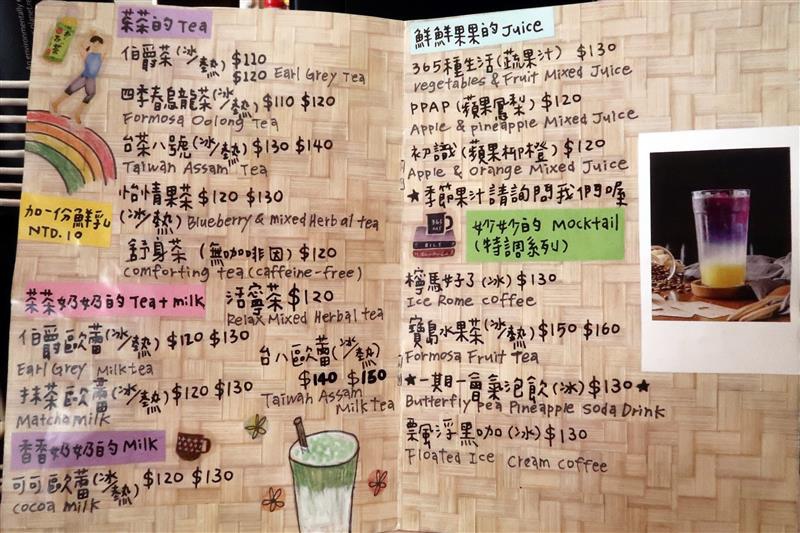 茶茶的 Tea
伯爵茶(冰/熱) $110 $120
Earl Grey Tea
四季春烏龍茶(冰/熱) $110 $120
Formosa Oolong Tea
台茶八號(冰/熱) $130 $140
Taiwan Assam Tea
怡情果茶 $120 $130
(冰/熱) Blueberry & mixed Herbal tea
加一份鮮乳
NTD.10
舒身茶 (無咖啡因) $120
comforting tea (caffeine-free)
活寧茶 $120
Relax Mixed Herbal tea
茶茶奶奶的 Tea + milk
伯爵歐蕾(冰/熱) $120 $130
Earl Grey Milk tea
抹茶歐蕾(冰/熱) $120 $130
Matcha milk
台八歐蕾(冰/熱)
$140 $150
Taiwan Assam
Milk tea
香香奶奶的 Milk
可可歐蕾(冰/熱) $120 $130
cocoa milk
鮮鮮果果的 Juice
365種生活(蔬果汁) $130
vegetables & Fruit Mixed Juice
PPAP (蘋果鳳梨) $120
Apple & pineapple Mixed Juice
初識(蘋果柳橙) $120
Apple & Orange Mixed Juice
★季節果汁請詢問我們喔
妙妙的 Mocktail
(特調系列)
檸馬好了(冰) $130
Ice Rome coffee
寶島水果茶(冰/熱) $150 $160
Formosa Fruit Tea
★一期一會氣泡飲(冰) $130★
Butterfly pea Pineapple Soda Drink
飄風浮黑咖(冰) $130
Floated Ice Cream coffee